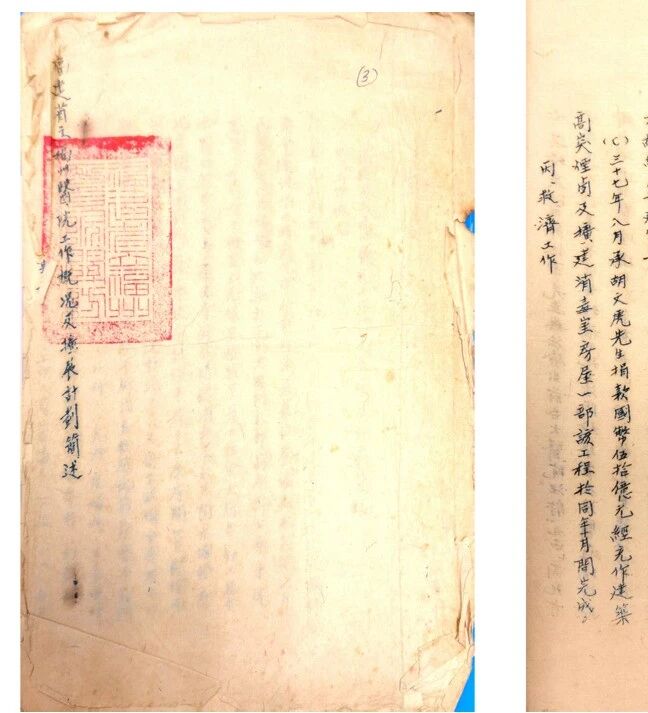 ③
福建省立福州醫院工作概况及擴展計劃簡述
(C)三十七年八月承胡文虎先生捐款國幣伍拾億元經充作建築
高突煙囪及擴建消毒室房屋一部該工程於同年十月間完成。
丙、救濟工作